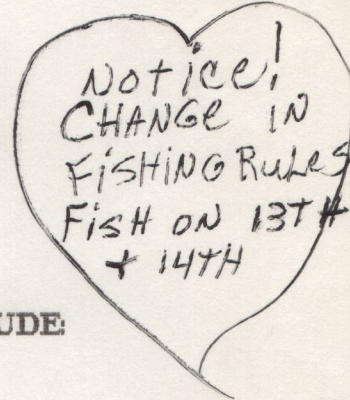 Notice!
CHANGE IN
FiSHING RuLeS
FisH ON 13TH
+ 14TH
UDE: